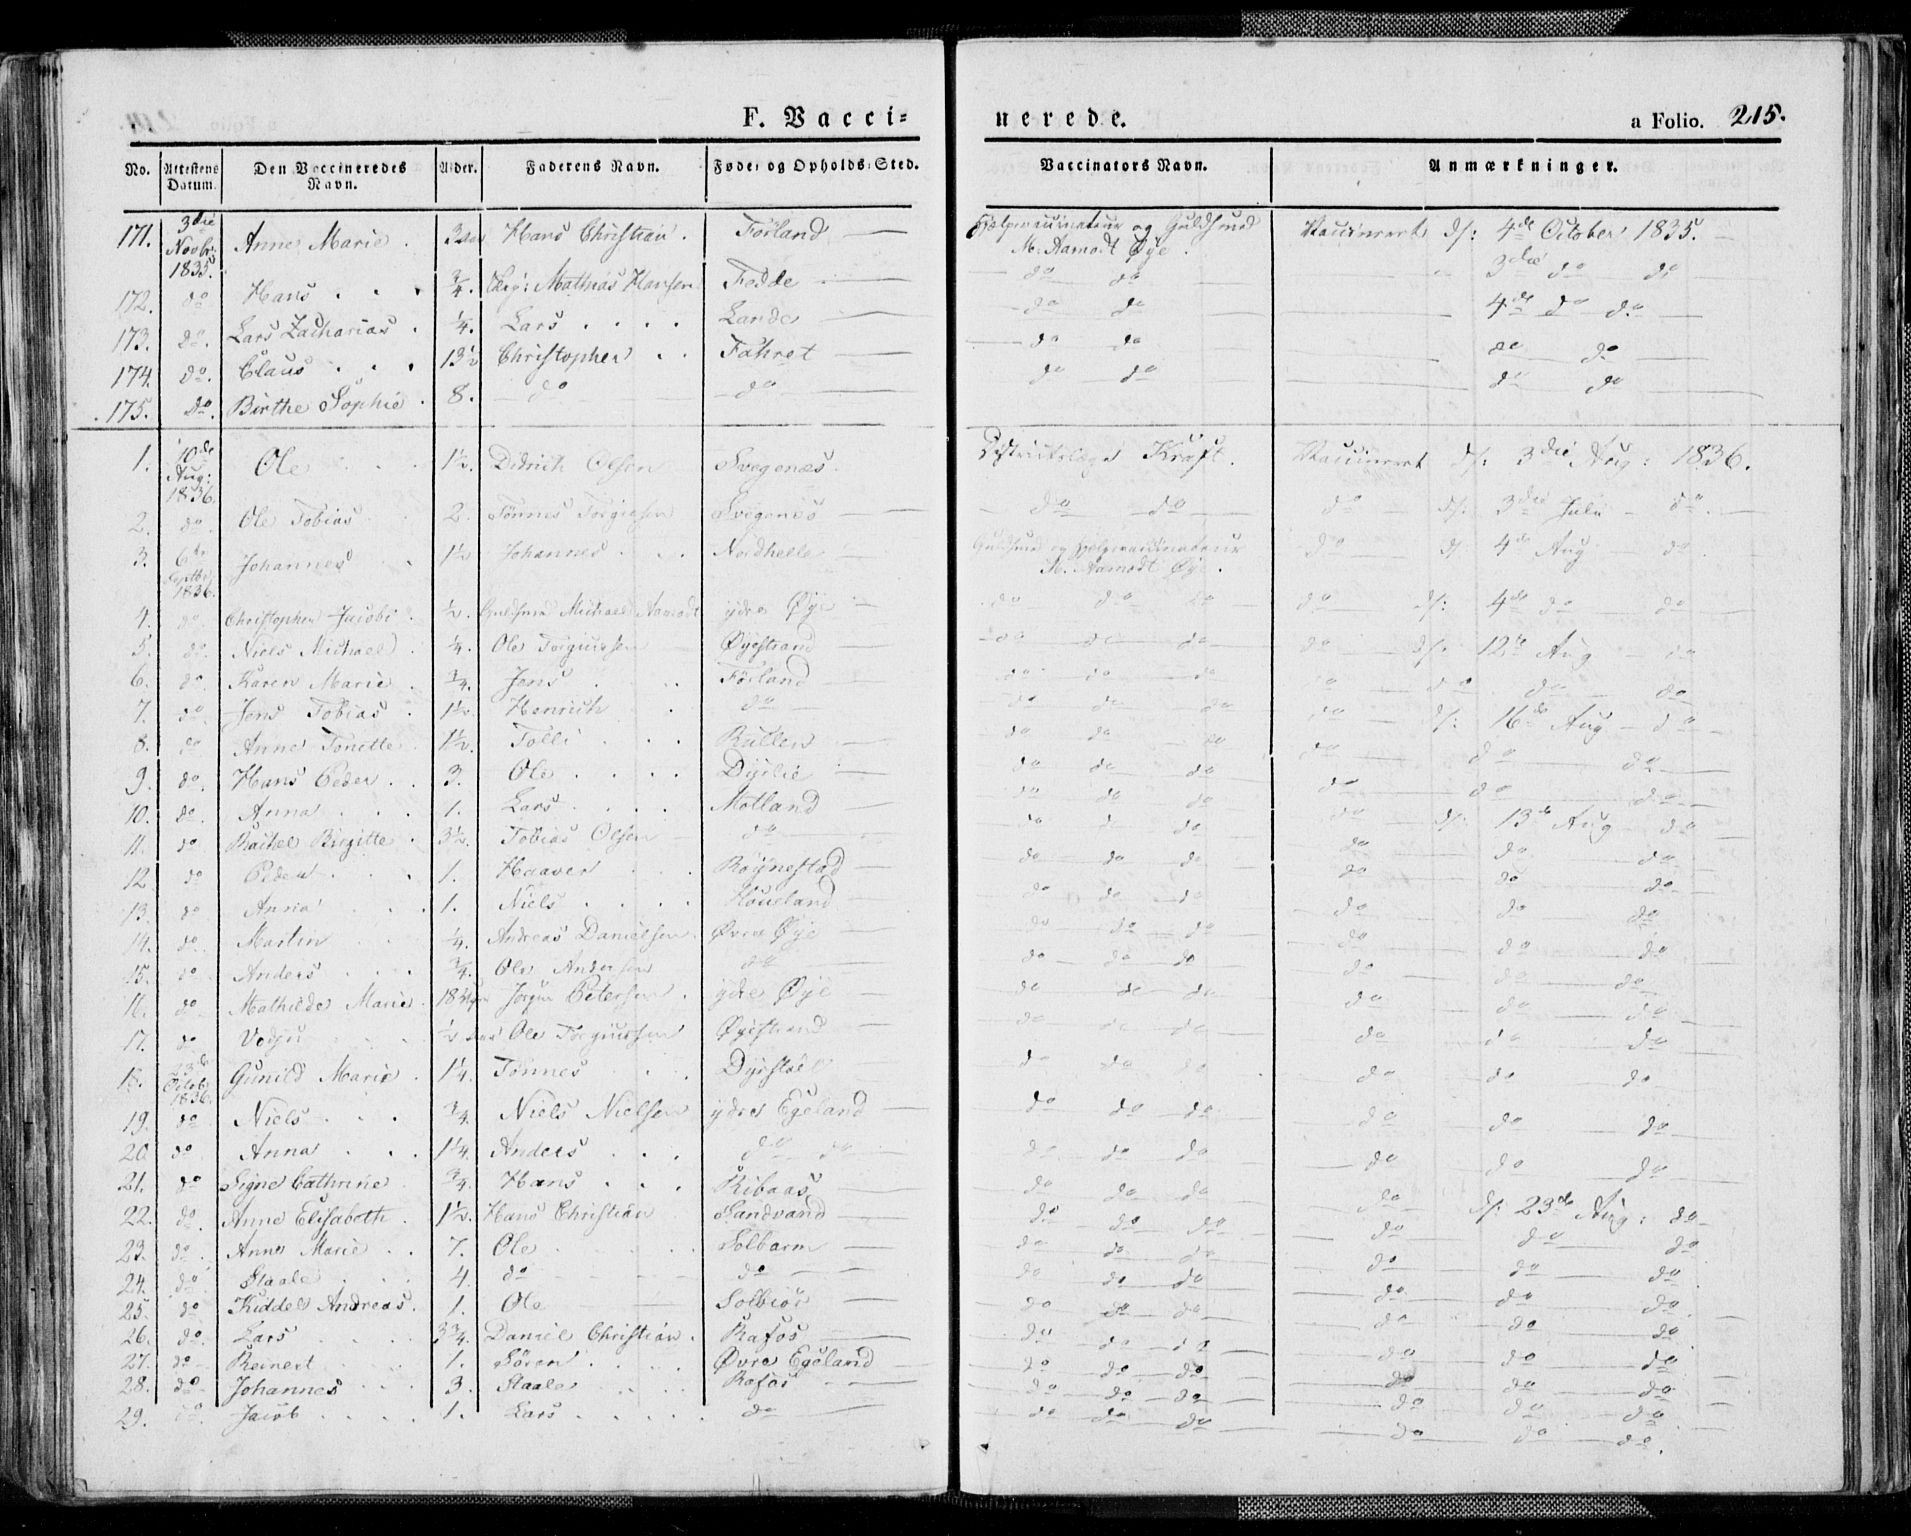 F. Vacci= nerede. a Folio. 215.
No. Attestens Datum. Den Vaccineredes Navn. Alder. Faderens Navn. Føde= og Opholds=Sted. Vaccinators Navn. Anmærkninger.
171. 3die Novbr. 1835. Anne Marie. Hans Christian. Førland Hjelpevaccinateur og Guldsmed M. Aamodt Øye. Vaccineret d/: 4de October 1835.
172. do Hans 3/4. Mathias Hansen Fedde do do 3die do do
173. do. Lars Zacharias. 1/4. Lars Lande do do 4de do do
174. do. Claus 13 1/2 Christopher Fahret do do do do
175. do. Birthe Sophie. 8. do do do do do do
1. 10de Aug: 1836. Ole 1 1/2. Didrich Olsen Svegenes. Districtslæge Kraft. Vaccineret d/: 3die Aug: 1836.
2. do. Ole Tobias 2. Tønnes Torgiesen Svegenes do do do d/: 3die Juli do.
3. 6te Septbr 1836. Johannes 1 1/2 Johannes Nordhelle Guldsmed og Hjelpevaccinateur M. Aamodt Øye. do d/: 4de Aug do.
4. do. Christopher Jacob 1/2. Guldsmed Michael Aamodt ydre Øye do do do do d/: 4de do do
5. do. Niels Michael. 1/4. Ole Torgiussen Øyestrand do do do do d/: 12te Aug do
6. do. Karen Marie. 3/4. Jens Førland do do do do do do do
7. do. Jens Tobias. 1 1/2. Henrich do do do do do d/: 16de Aug do
8. do Anne Tonette. 1 1/2. Tolli Rullen do do do do do do
9. do. Hans Peder. 3. Ole Dyrlie do do do do do do
10. do. Anna 1. Lars Motland do do do do d/: 13de Aug do
11. do Rachel Birgitte. 3 1/2. Tobias Olsen do do do do do do do
12 do Peder 1. Haaver Røynestad do do do do do do
13. do Anna 1. Niels Houeland do do do do do do
14. do. Martin 1/4. Andreas Danielsen. Øvre Øye do do do do do do
15. do. Anders 3/4. Ole Andersen do do do do do do do
16. do. Mathilde Marie. Jørgen Petersen. ydre Øye do do do do do do
17. do Ole Torgiussen Øyestrand do do do do do do
18. 23de Octobr 1836. Gunild Marie. 1 1/4. Tønnes Dyrstøl do do do do do do
19. do Niels 3/4. Niels Nielsen ydre Egeland do do do do do do
20. do Anna 1 1/4. Anders do do do do do do do do
21. do Signe Cathrine 3/4. Hans Ribaas do do do do d/: 23de Aug: do
22. do. Anne Elisabeth. 1 1/2. Hans Christian Sandvand do do do do do do
23. do. Anne Marie 7. Ole Solbarm do do do do do do
24. do. Staale 4. do do do do do do do do
25. do Kiddel Andreas. 1. Ole Solbiør do do do do do do
26. do. Lars 3 3/4. Daniel Christian. Rafos do do do do do do
27. do Reinert 1. Søren Øvre Egeland do do do do do do
28. do Johannes 3. Staale Rafos do do do do do do
29. do. Jacob 1. Lars do do do do do do do.